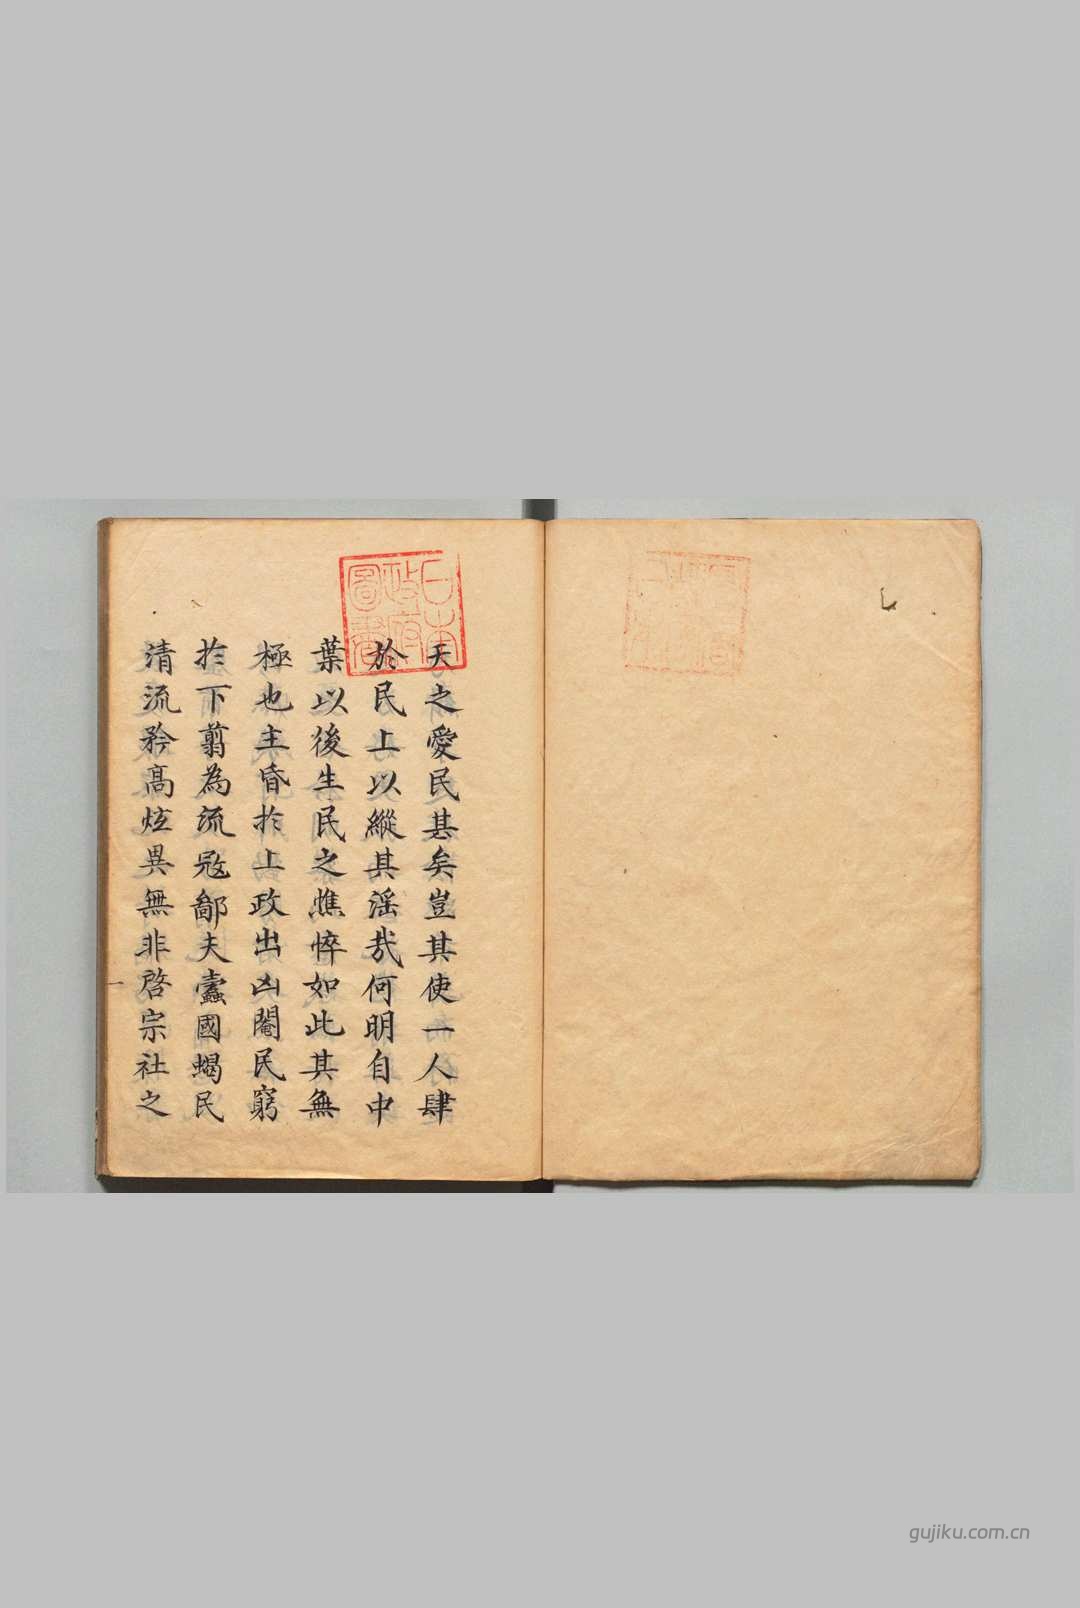 天之愛民甚矣豈其使一人肆
於民上以縱其滛哉何明自中
葉以後生民之憔悴如此其無
極也主昏扵上政出凶閹民窮
扵下翦為流寇鄙夫蠹國蝎民
清流矜高炫異無非啓宗社之
日本政府圖書
gujiku.com.cn